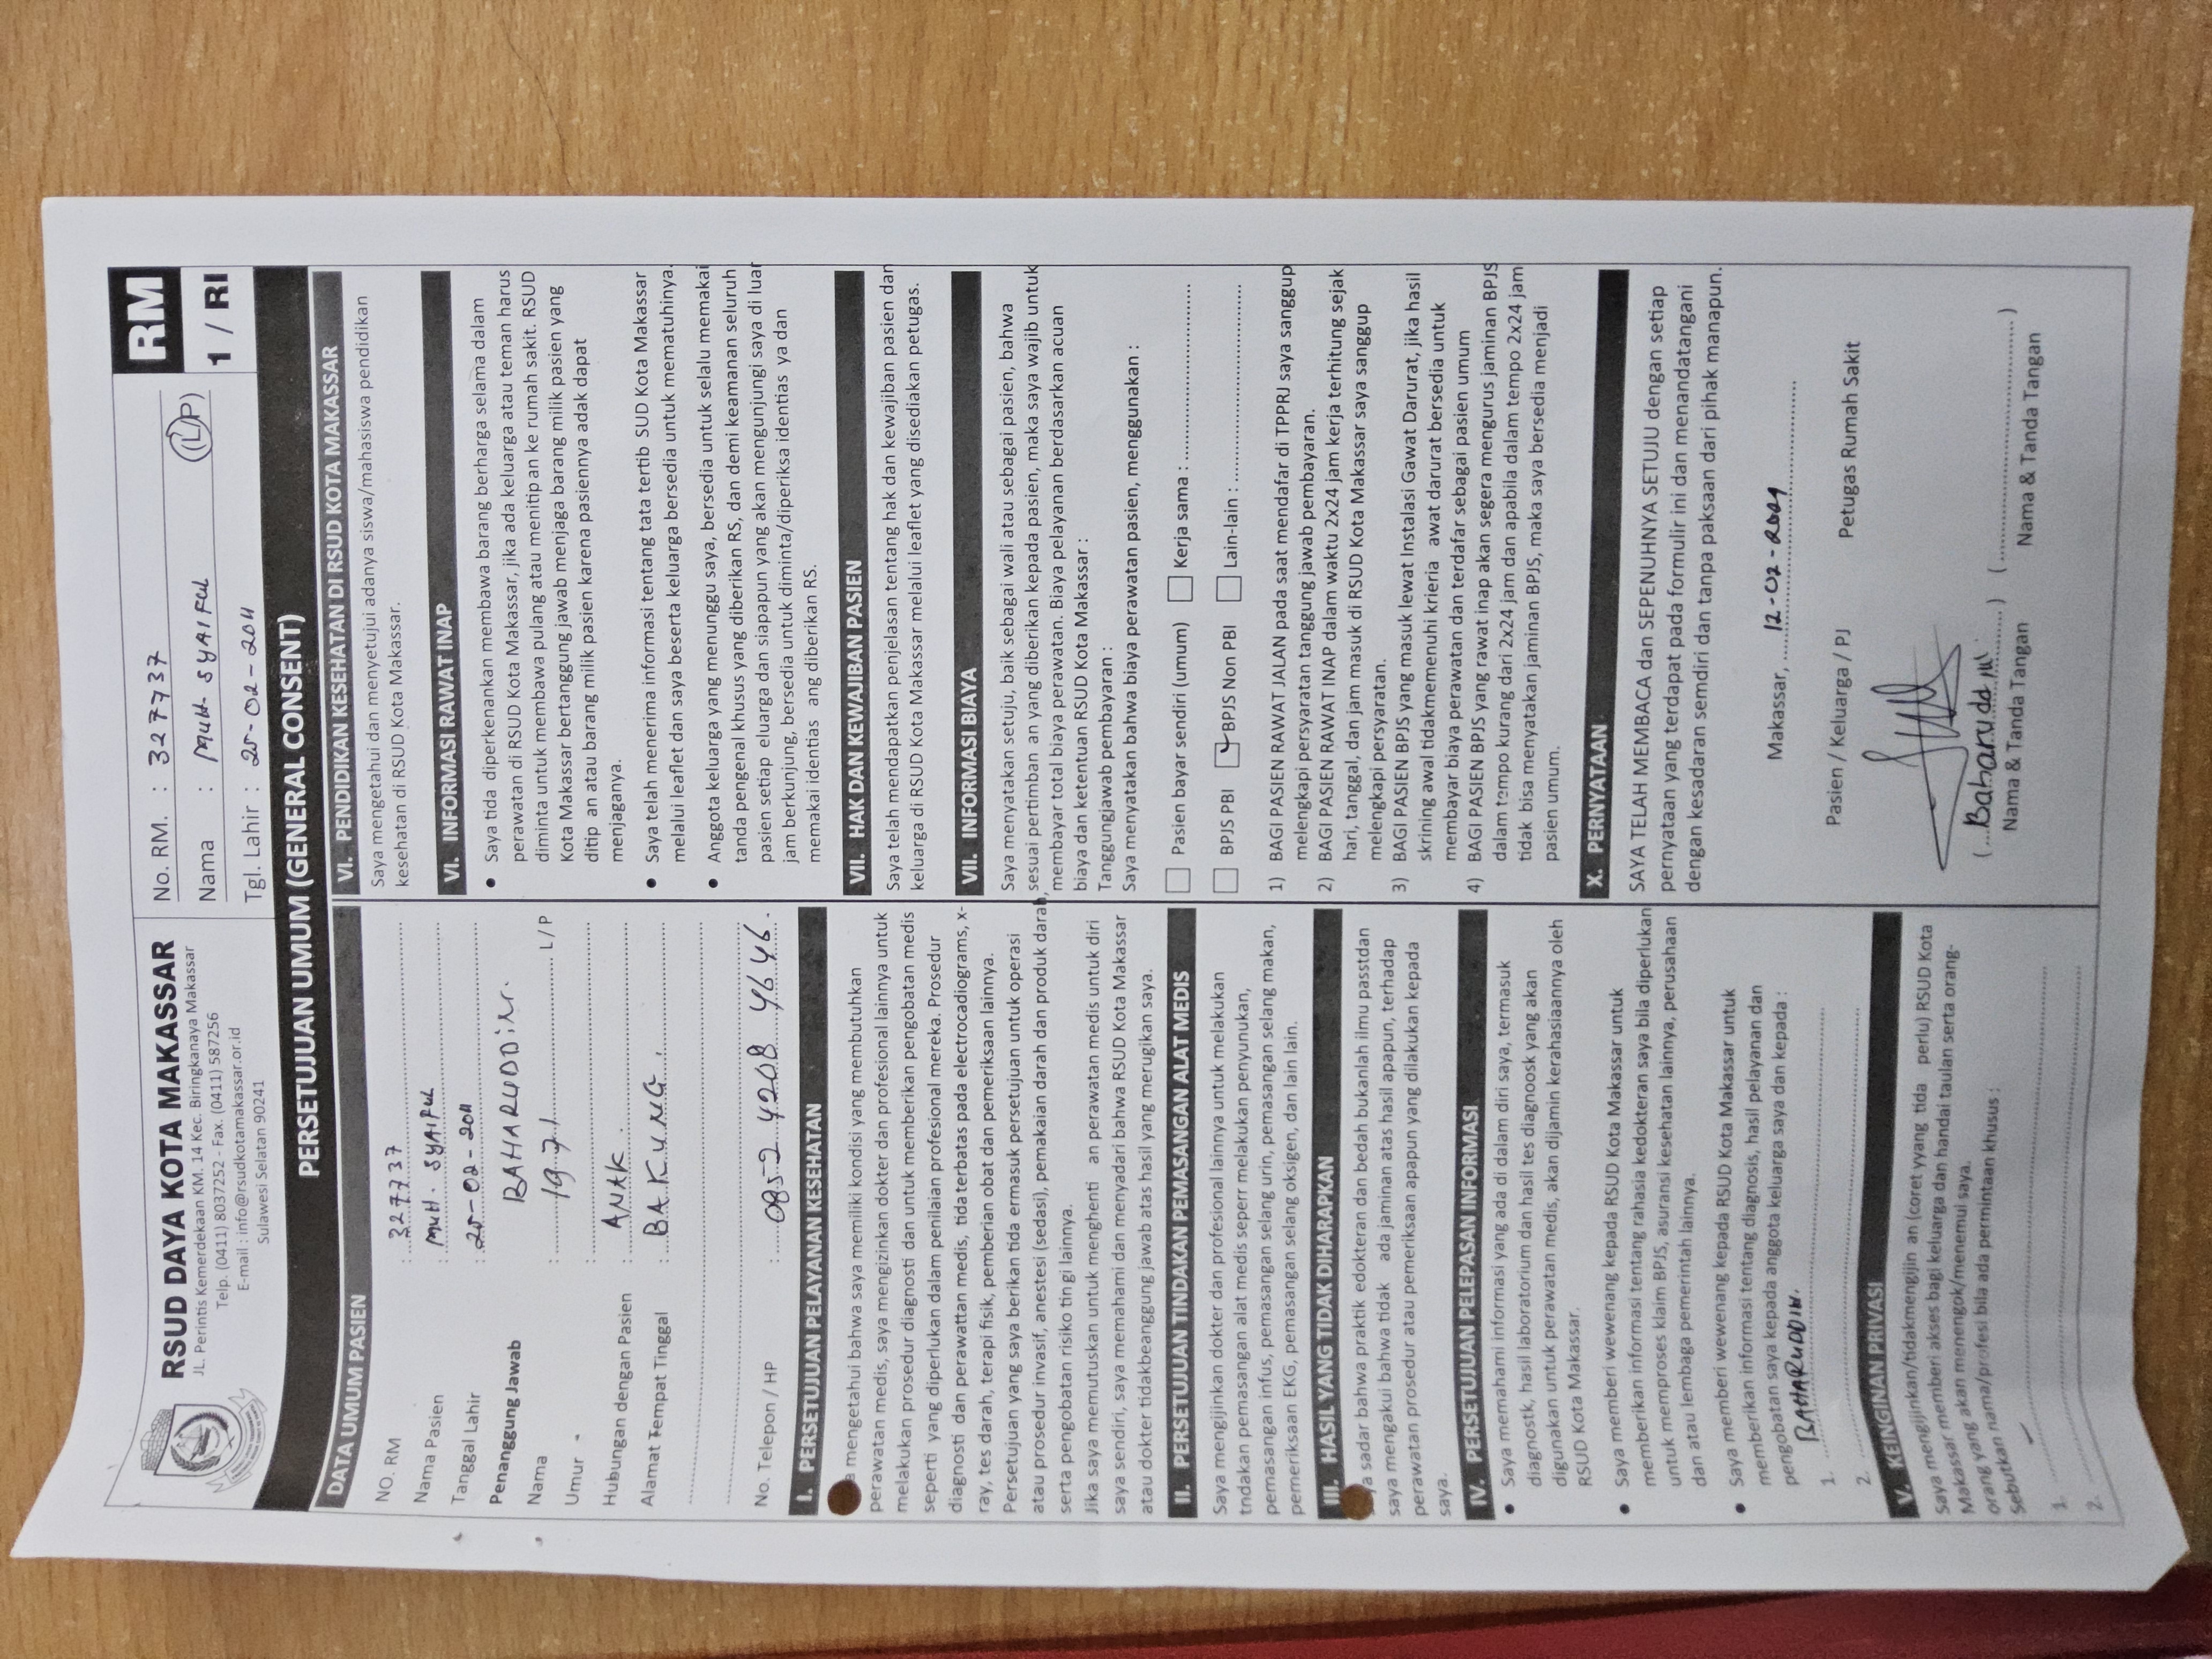 RSUD DAYA KOTA MAKASSAR
JL. Perintis Kemerdekaan KM. 14 Kec. Biringkanaya Makassar
Telp. (0411) 8037252 - Fax. (0411) 587256
E-mail : info@rsudkotamakassar.or.id
Sulawesi Selatan 90241
No. RM. : 327737
Nama : MUH. SYAIFUL (L/P)
Tgl. Lahir : 25-02-2011
RM
1 / RI
PERSETUJUAN UMUM (GENERAL CONSENT)
DATA UMUM PASIEN
NO. RM : 327737
Nama Pasien : MUH. SYAIFUL
Tanggal Lahir : 25-02-2011
Penanggung Jawab
BAHARUDDIN.
Nama : 1971 L / P
Umur :
Hubungan dengan Pasien : ANAK.
Alamat Tempat Tinggal : BAKUNG.
No. Telepon / HP : 0852 4208 4646.
I. PERSETUJUAN PELAYANAN KESEHATAN
a mengetahui bahwa saya memiliki kondisi yang membutuhkan
perawatan medis, saya mengizinkan dokter dan profesional lainnya untuk
melakukan prosedur diagnosti dan untuk memberikan pengobatan medis
seperti yang diperlukan dalam penilaian profesional mereka. Prosedur
diagnosti dan perawattan medis, tida terbatas pada electrocadiograms, x-
ray, tes darah, terapi fisik, pemberian obat dan pemeriksaan lainnya.
Persetujuan yang saya berikan tida ermasuk persetujuan untuk operasi
atau prosedur invasif, anestesi (sedasi), pemakaian darah dan produk darah,
serta pengobatan risiko tin gi lainnya.
Jika saya memutuskan untuk menghenti an perawatan medis untuk diri
saya sendiri, saya memahami dan menyadari bahwa RSUD Kota Makassar
atau dokter tidakbeanggung jawab atas hasil yang merugikan saya.
II. PERSETUJUAN TINDAKAN PEMASANGAN ALAT MEDIS
Saya mengijinkan dokter dan profesional lainnya untuk melakukan
tndakan pemasangan alat medis seperr melakukan penyunukan,
pemasangan infus, pemasangan selang urin, pemasangan selang makan,
pemeriksaan EKG, pemasangan selang oksigen, dan lain lain.
III. HASIL YANG TIDAK DIHARAPKAN
ya sadar bahwa praktik edokteran dan bedah bukanlah ilmu passtdan
saya mengakui bahwa tidak ada jaminan atas hasil apapun, terhadap
perawatan prosedur atau pemeriksaan apapun yang dilakukan kepada
saya.
IV. PERSETUJUAN PELEPASAN INFORMASI
• Saya memahami informasi yang ada di dalam diri saya, termasuk
diagnostk, hasil laboratorium dan hasil tes diagnoosk yang akan
digunakan untuk perawatan medis, akan dijamin kerahasiaannya oleh
RSUD Kota Makassar.
• Saya memberi wewenang kepada RSUD Kota Makassar untuk
memberikan informasi tentang rahasia kedokteran saya bila diperlukan
untuk memproses klaim BPJS, asuransi kesehatan lainnya, perusahaan
dan atau lembaga pemerintah lainnya.
• Saya memberi wewenang kepada RSUD Kota Makassar untuk
memberikan informasi tentang diagnosis, hasil pelayanan dan
pengobatan saya kepada anggota keluarga saya dan kepada :
1. BAHARUDDIN.
2.
V. KEINGINAN PRIVASI
Saya mengijinkan/tidakmengijin an (coret yyang tida perlu) RSUD Kota
Makassar memberi akses bagi keluarga dan handai taulan serta orang-
orang yang akan menengok/menemui saya.
Sebutkan nama/profesi bila ada permintaan khusus :
1.
2.
VI. PENDIDIKAN KESEHATAN DI RSUD KOTA MAKASSAR
Saya mengetahui dan menyetujui adanya siswa/mahasiswa pendidikan
kesehatan di RSUD Kota Makassar.
VI. INFORMASI RAWAT INAP
• Saya tida diperkenankan membawa barang berharga selama dalam
perawatan di RSUD Kota Makassar, jika ada keluarga atau teman harus
diminta untuk membawa pulang atau menitip an ke rumah sakit. RSUD
Kota Makassar bertanggung jawab menjaga barang milik pasien yang
ditip an atau barang milik pasien karena pasiennya adak dapat
menjaganya.
• Saya telah menerima informasi tentang tata tertib SUD Kota Makassar
melalui leaflet dan saya beserta keluarga bersedia untuk mematuhinya.
• Anggota keluarga yang menunggu saya, bersedia untuk selalu memakai
tanda pengenal khusus yang diberikan RS, dan demi keamanan seluruh
pasien setiap eluarga dan siapapun yang akan mengunjungi saya di luar
jam berkunjung, bersedia untuk diminta/diperiksa identias ya dan
memakai identias ang diberikan RS.
VII. HAK DAN KEWAJIBAN PASIEN
Saya telah mendapatkan penjelasan tentang hak dan kewajiban pasien dan
keluarga di RSUD Kota Makassar melalui leaflet yang disediakan petugas.
VII. INFORMASI BIAYA
Saya menyatakan setuju, baik sebagai wali atau sebagai pasien, bahwa
sesuai pertimban an yang diberikan kepada pasien, maka saya wajib untuk
membayar total biaya perawatan. Biaya pelayanan berdasarkan acuan
biaya dan ketentuan RSUD Kota Makassar :
Tanggungjawab pembayaran :
Saya menyatakan bahwa biaya perawatan pasien, menggunakan :
Pasien bayar sendiri (umum) Kerja sama :
BPJS PBI BPJS Non PBI Lain-lain :
1) BAGI PASIEN RAWAT JALAN pada saat mendafar di TPPRJ saya sanggup
melengkapi persyaratan tanggung jawab pembayaran.
2) BAGI PASIEN RAWAT INAP dalam waktu 2x24 jam kerja terhitung sejak
hari, tanggal, dan jam masuk di RSUD Kota Makassar saya sanggup
melengkapi persyaratan.
3) BAGI PASIEN BPJS yang masuk lewat Instalasi Gawat Darurat, jika hasil
skrining awal tidakmemenuhi krieria awat darurat bersedia untuk
membayar biaya perawatan dan terdafar sebagai pasien umum
4) BAGI PASIEN BPJS yang rawat inap akan segera mengurus jaminan BPJS
dalam tempo kurang dari 2x24 jam dan apabila dalam tempo 2x24 jam
tidak bisa menyatakan jaminan BPJS, maka saya bersedia menjadi
pasien umum.
X. PERNYATAAN
SAYA TELAH MEMBACA dan SEPENUHNYA SETUJU dengan setiap
pernyataan yang terdapat pada formulir ini dan menandatangani
dengan kesadaran semdiri dan tanpa paksaan dari pihak manapun.
Makassar, 12-02-2021
Pasien / Keluarga / PJ Petugas Rumah Sakit
(Baharuddin) (....................)
Nama & Tanda Tangan Nama & Tanda Tangan